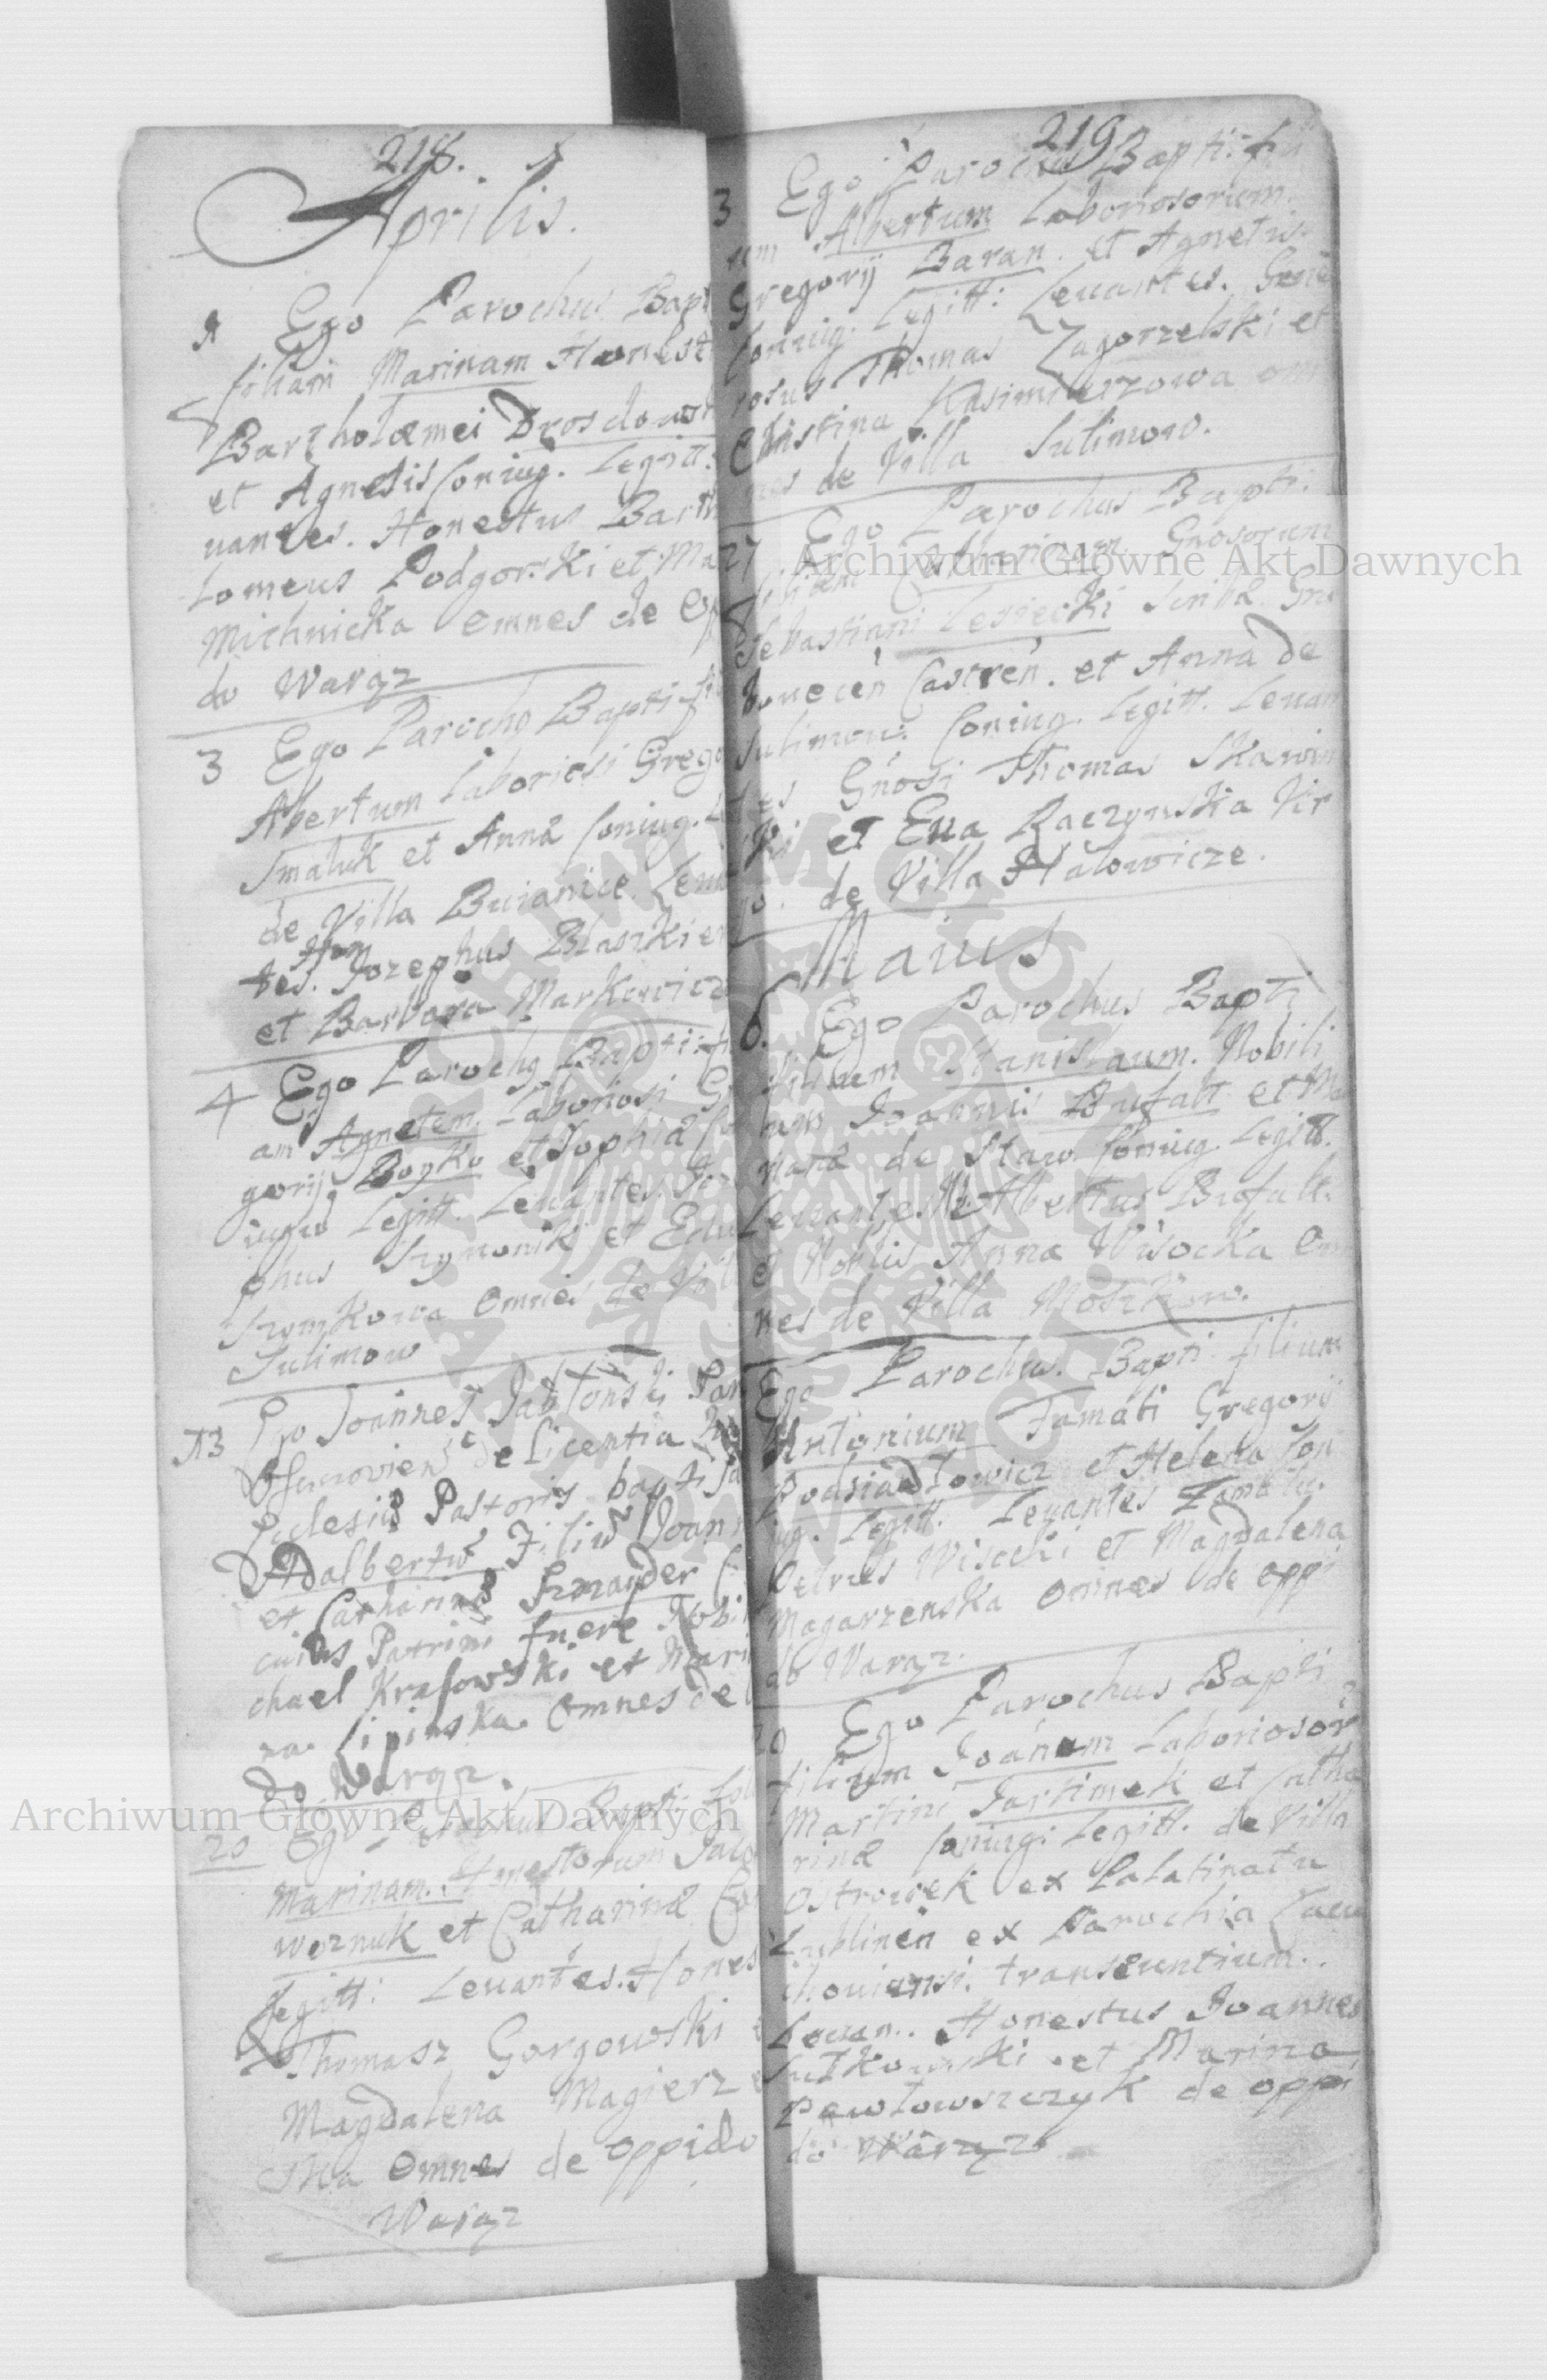 218.
Aprilis.
1 Ego Parochus Bapt
filiam Marinam Honest
Bartholomei Drosdowsk
et Agnetis Coniug. Legitt.
uantes. Honestus Barth
lomeus Podgorski et Ma
Michnicka omnes de Op
do Waręz
3 Ego Parochg Bapti: fil
Albertum Laboriosi Grego
Smaluk et Annæ Coniug. L
de Villa Buianice Leua
Hon
tes. Jozephus Blaszkie
et Barbara Markowicz
4 Ego Parochg Bapti: f
am Agnetem Laboriosi G
gorij Boyko et Sophiæ Co
iugu Legitt. Leuantes. Jo
phus Szymonik et Edu
Szymkowa Omnes de Vil
Sulimow
13 Ego Joannes Jabłonski Par
de licentia
Ecclesiæ Pastoris bapti
Adalbertu Filiu Joann
et Catharinæ Sznayder C
cuius Patrini fuere Nobi
chael Krasowski et Mari
na Lipinska Omnes de O
do Waręz.
20 Ego Parochus Bapti:
Marinam. Honestorum Jaco
woznuk et Catharinæ Co
Legitt: Leuantes. Hones
Thomasz Gorgowski
Magdalena Magierz
ska Omnes de Oppido
Waręz
219
3 Ego Parochus Bapti: fili
um Albertum Laboriosorum
Gregorij Baran. et Agnetis
Coniug. Legitt: Leuantes. Gene
rosus Thomas Zagorzelski et
Christina Kasimierzowa om
nes de Villa Sulimow.
27 Ego Parochus Bapti:
filiam Catharinam Gnosorum
Sebastiani Lesiecki Scribæ Gra
bouecen Castren. et Anna de
Sulimow. Coniug. Legitt. Leuan
tes Gnosi Thomas Skawin
ski et Eua Raczynska Vir
go. de Villa Hatowicze.
Maius
6. Ego Parochus Bapti
filium Stanislaum. Nobili
um Joannis Brufalt et Ma
rianæ de Staw Coniug. Legitt.
Leuantes. N. Albertus Brufalt.
et Nobilis Anna Wisocka Om
nes de Villa Moszkow.
Ego Parochus. Bapti filium
Antonium Famati Gregorij
Podsiadłowicz et Helena Con
iug. Legitt. Leuantes Famatu.
Petrus Wisocki et Magdalena
Magarzenska Omnes de oppi
do Waręz.
20 Ego Parochus Bapti
filium Joánum Laboriosor
Martini Jartimek et Catha
rinæ Coniug: Legitt. de Villa
Ostrowek ex Palatinatu
Lublinen ex Parochia
chouiensi. transeuntium.
Leuan. Honestus Joannes
Sutkowski et Marina
Pawłowszczyk de oppi
do Waręz
Archiwum Główne Akt Dawnych
Archiwum Główne Akt Dawnych